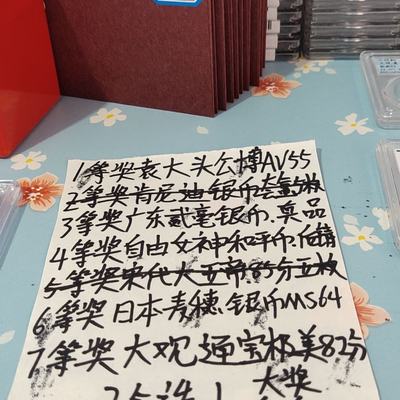 1等奖袁大头公博AV55
2等奖肯尼迪银币套盒5枚
3等奖广东贰毫银币.真品
4等奖自由女神和平币.后精
5等奖宋代大五帝.85分五枚
6等奖日本麦穗.银币MS64
7等奖大观通宝极美82分
大奖